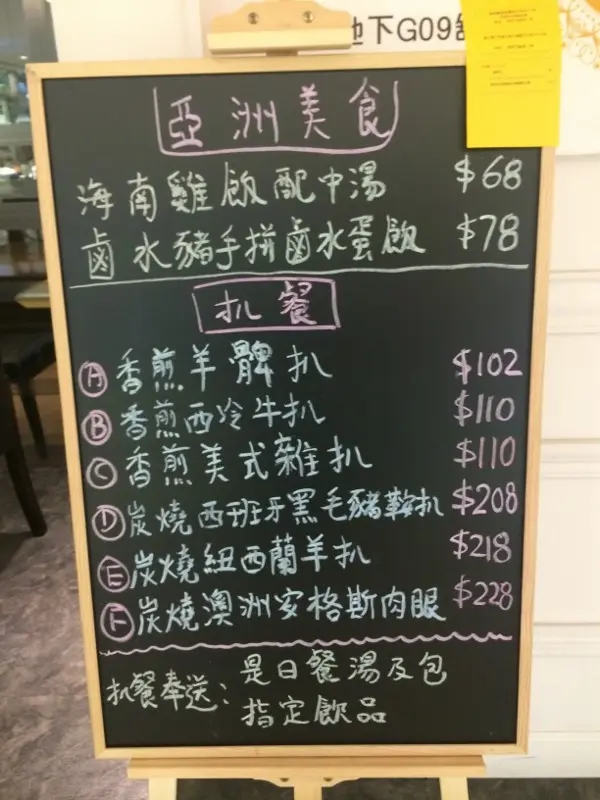 地下G09舖
亞洲美食
海南雞飯配中湯 $68
鹵水豬手拼鹵水蛋飯 $78
扒餐
A 香煎羊髀扒 $102
B 香煎西冷牛扒 $110
C 香煎美式雜扒 $110
D 炭燒西班牙黑毛豬鞍扒 $208
E 炭燒紐西蘭羊扒 $218
F 炭燒澳洲安格斯肉眼 $228
扒餐奉送：是日餐湯及包
指定飲品